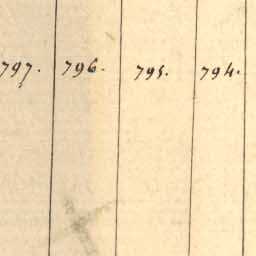 797. 796. 795. 794.